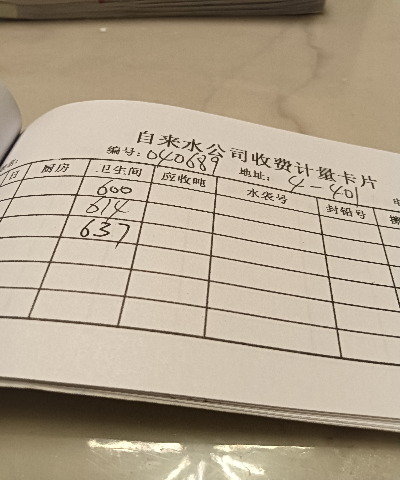 自来水公司收费计量卡片
编号：040689 地址：4-401
日 厨房 卫生间 应收吨 水表号 封铅号
600
614
637